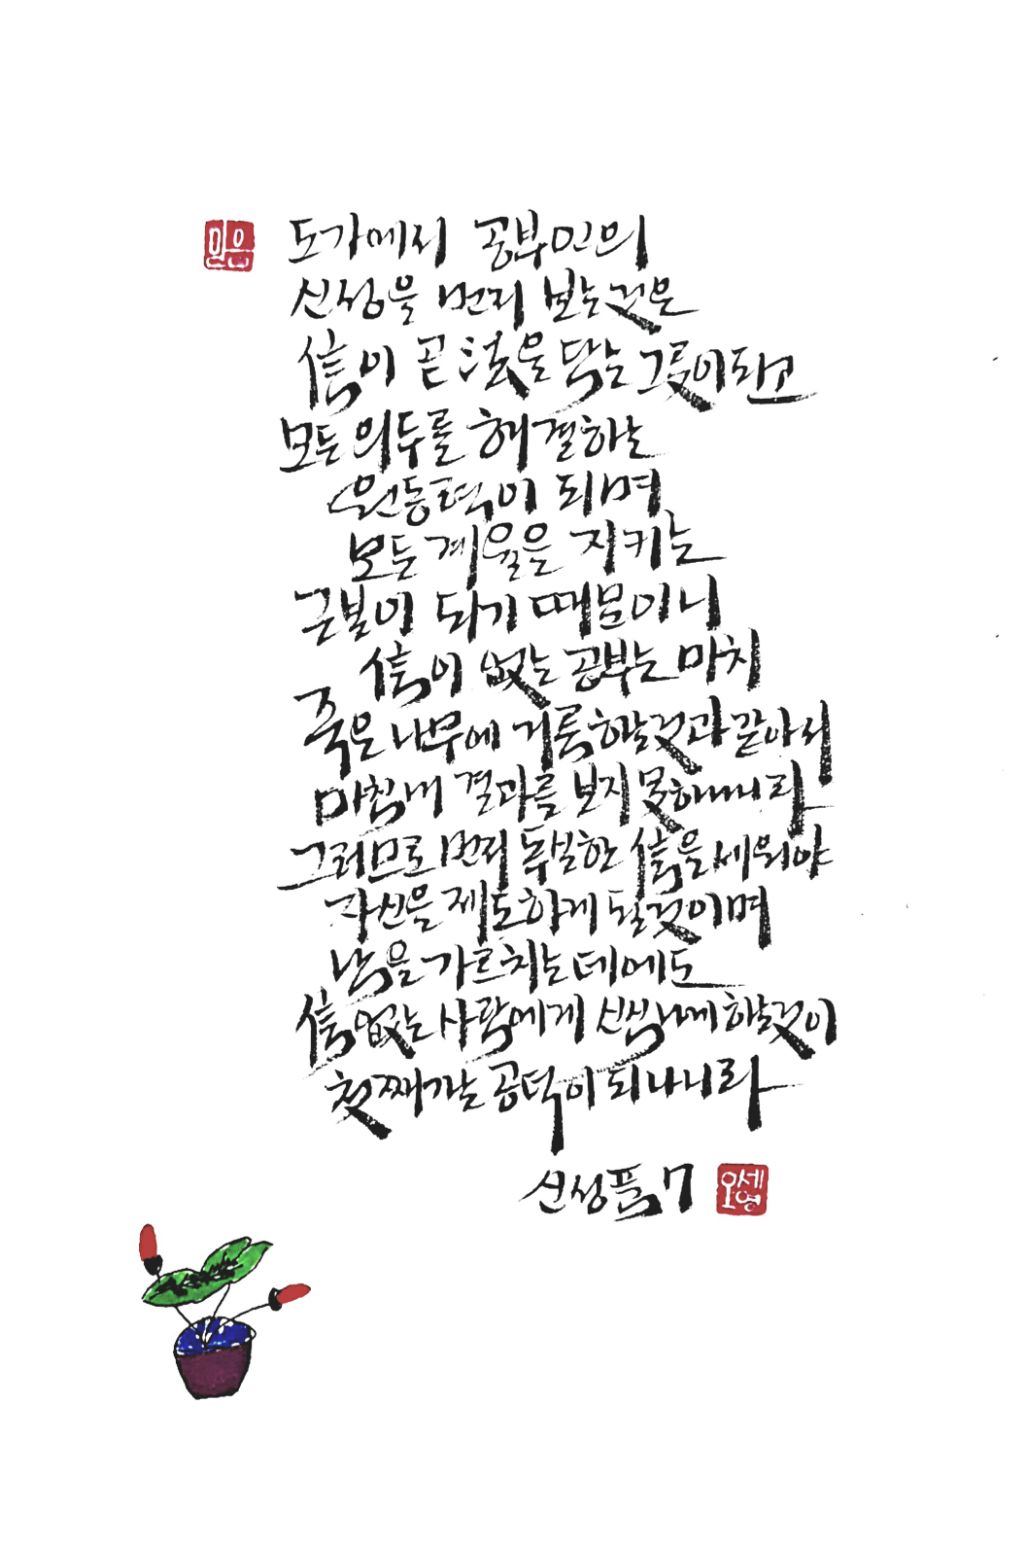 믿음
도가에서 공부인의
신성을 먼저 보는것은
信이 곧 法을 담는 그릇이되고
모든 의두를 해결하는
원동력이 되며
모든 계율을 지키는
근본이 되기 때문이니
信이 없는 공부는 마치
죽은 나무에 거름할것과 같아서
마침내 결과를 보지못하나니라
그러므로 먼저 독실한 信을 세워야
자신을 제도하게 될것이며
남을 가르치는데에도
信없는 사람에게 신심나게 할것이
첫째가는 공덕이 되나니라
신성품7
오세영